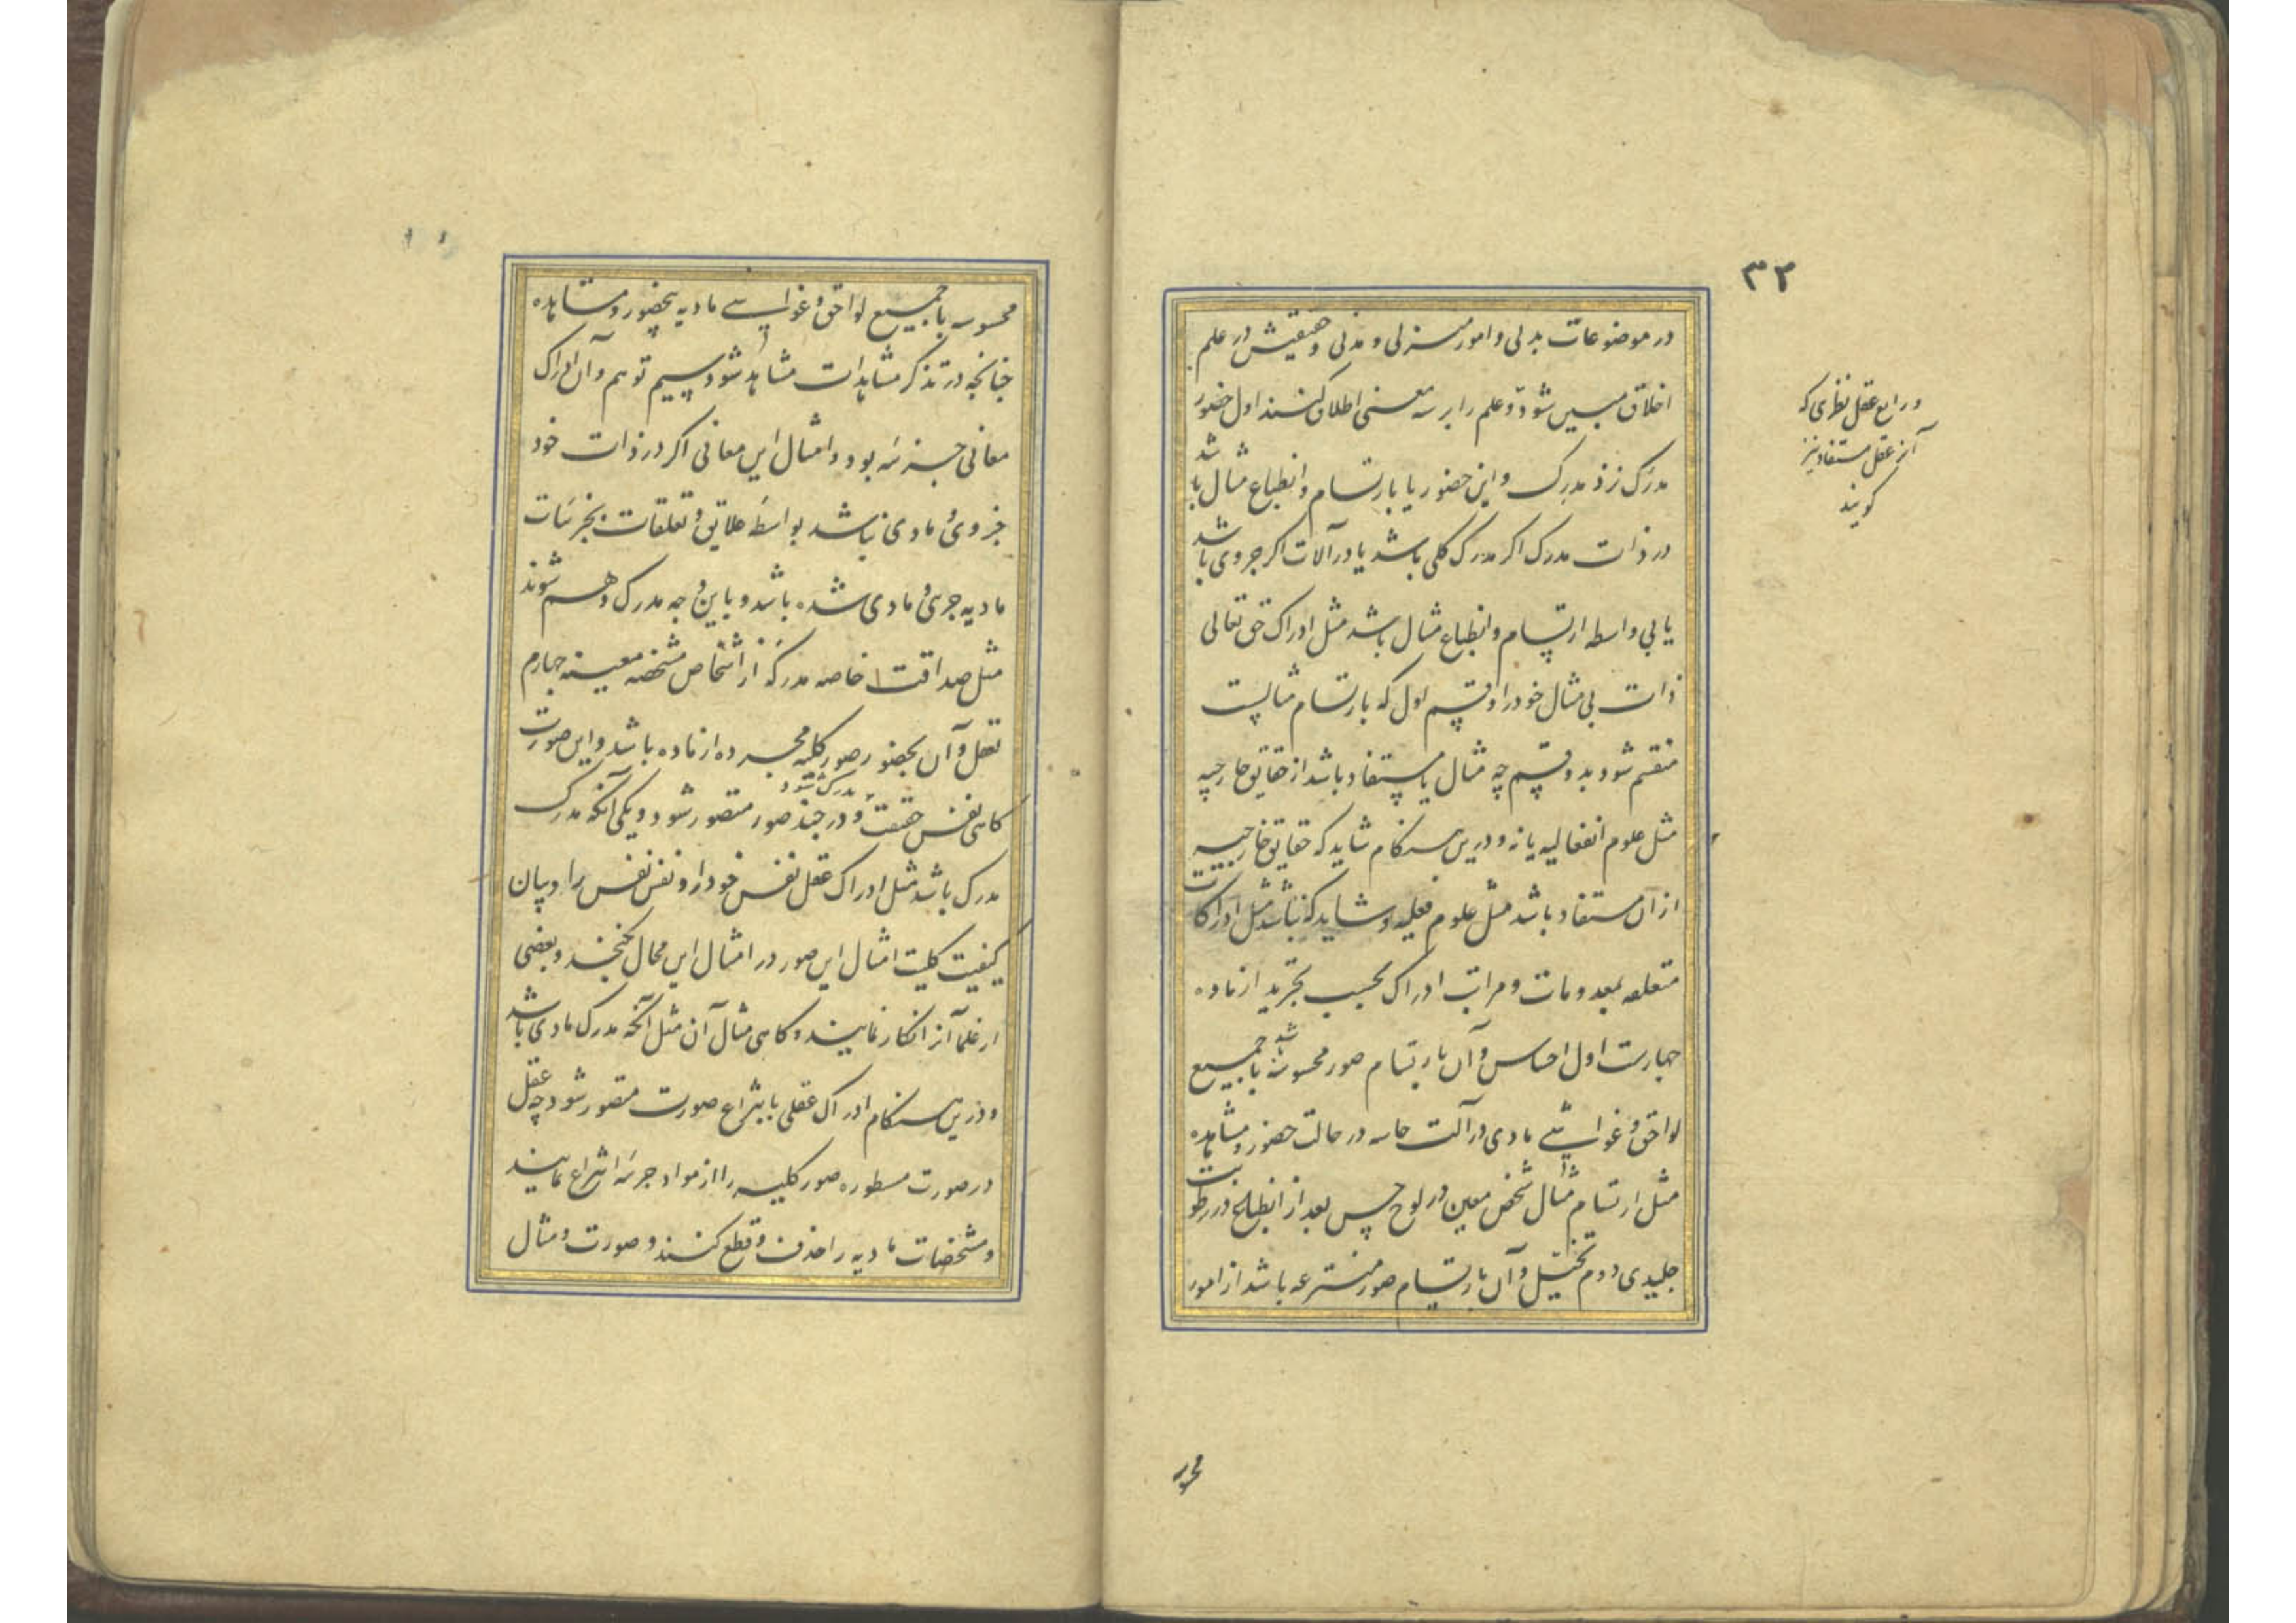 ۳۲
در موضوعات بدنی و امور منزلی و مدنی و حقیقیش در علم
اخلاق مبین شود و علم را بر سه معنی اطلاق کنند اول حضور
مدرک نزد مدرک و این حضور یا بارتسام و انطباع مثال باشد
در ذات مدرک اکر مدرک کلی باشد یا در آلات اکر جزوی باشد
یا بی واسطه ارتسام و انطباع مثال باشد مثل ادراک حق تعالی
ذات بی مثال خود را و قسم اول که بارتسام مثالیست
منقسم شود بدو قسم چه مثال یا مستفاد باشد از حقایق خارجیه
مثل علوم انفعالیه یا نه و درین هنکام شاید که حقایق خارجیه
از آن مستفاد باشد مثل علوم فعلیه و شاید که نباشد مثل ادراکات
متعلقه بمعدومات و مراتب ادراک بحسب تجرید از ماده
چهارست اول احساس و آن بارتسام صور محسوسه باشد با جمیع
لواحق و غواشی مادی در آلت حاسه در حالت حضور و مشاهده
مثل ارتسام مثال شخص معین در لوح حس بعد از انطباع در رطوبت
جلیدی دوم تخیل و آن بارتسام صور منتزعه باشد از امور
و رابع عقل نظری که
آنرا عقل مستفاد نیز
کویند
محسوسه
محسوسه با جمیع لواحق و غواشی مادیه بحضور و مشاهده
چنانچه در تذکر مشاهدات مشاهد شود سیم توهم و آن ادراک
معانی جزئیه بود و امثال این معانی اکر در ذات خود
جزوی و مادی نباشد بواسطه علایق و تعلقات بجزئیات
مادیه جزی و مادی شده باشد و باین وجه مدرک وهم شوند
مثل صداقت خاصه مدرکه از اشخاص مشخصه معینه چهارم
تعقل و آن بحضور صور کلیه مجرده از ماده باشد و این صورت
کاهی نفس حقیقت مدرک شود و در چند صور متصور شود و یکی آنکه مدرک
مدرک باشد مثل ادراک عقل نفس خود را و نفس نفس را و بیان
کیفیت کلیت امثال این صور در امثال این محال نکنجد و بعضی
از علما آنرا انکار نمایند و کاهی مثال آن مثل آنکه مدرک مادی باشد
و درین هنکام ادراک عقلی بانتزاع صورت متصور شود چه عقل
در صورت مسطوره صور کلیه را از مواد جزئیه انتزاع نمایند
و مشخصات مادیه را حذف و قطع کنند و صورت و مثال